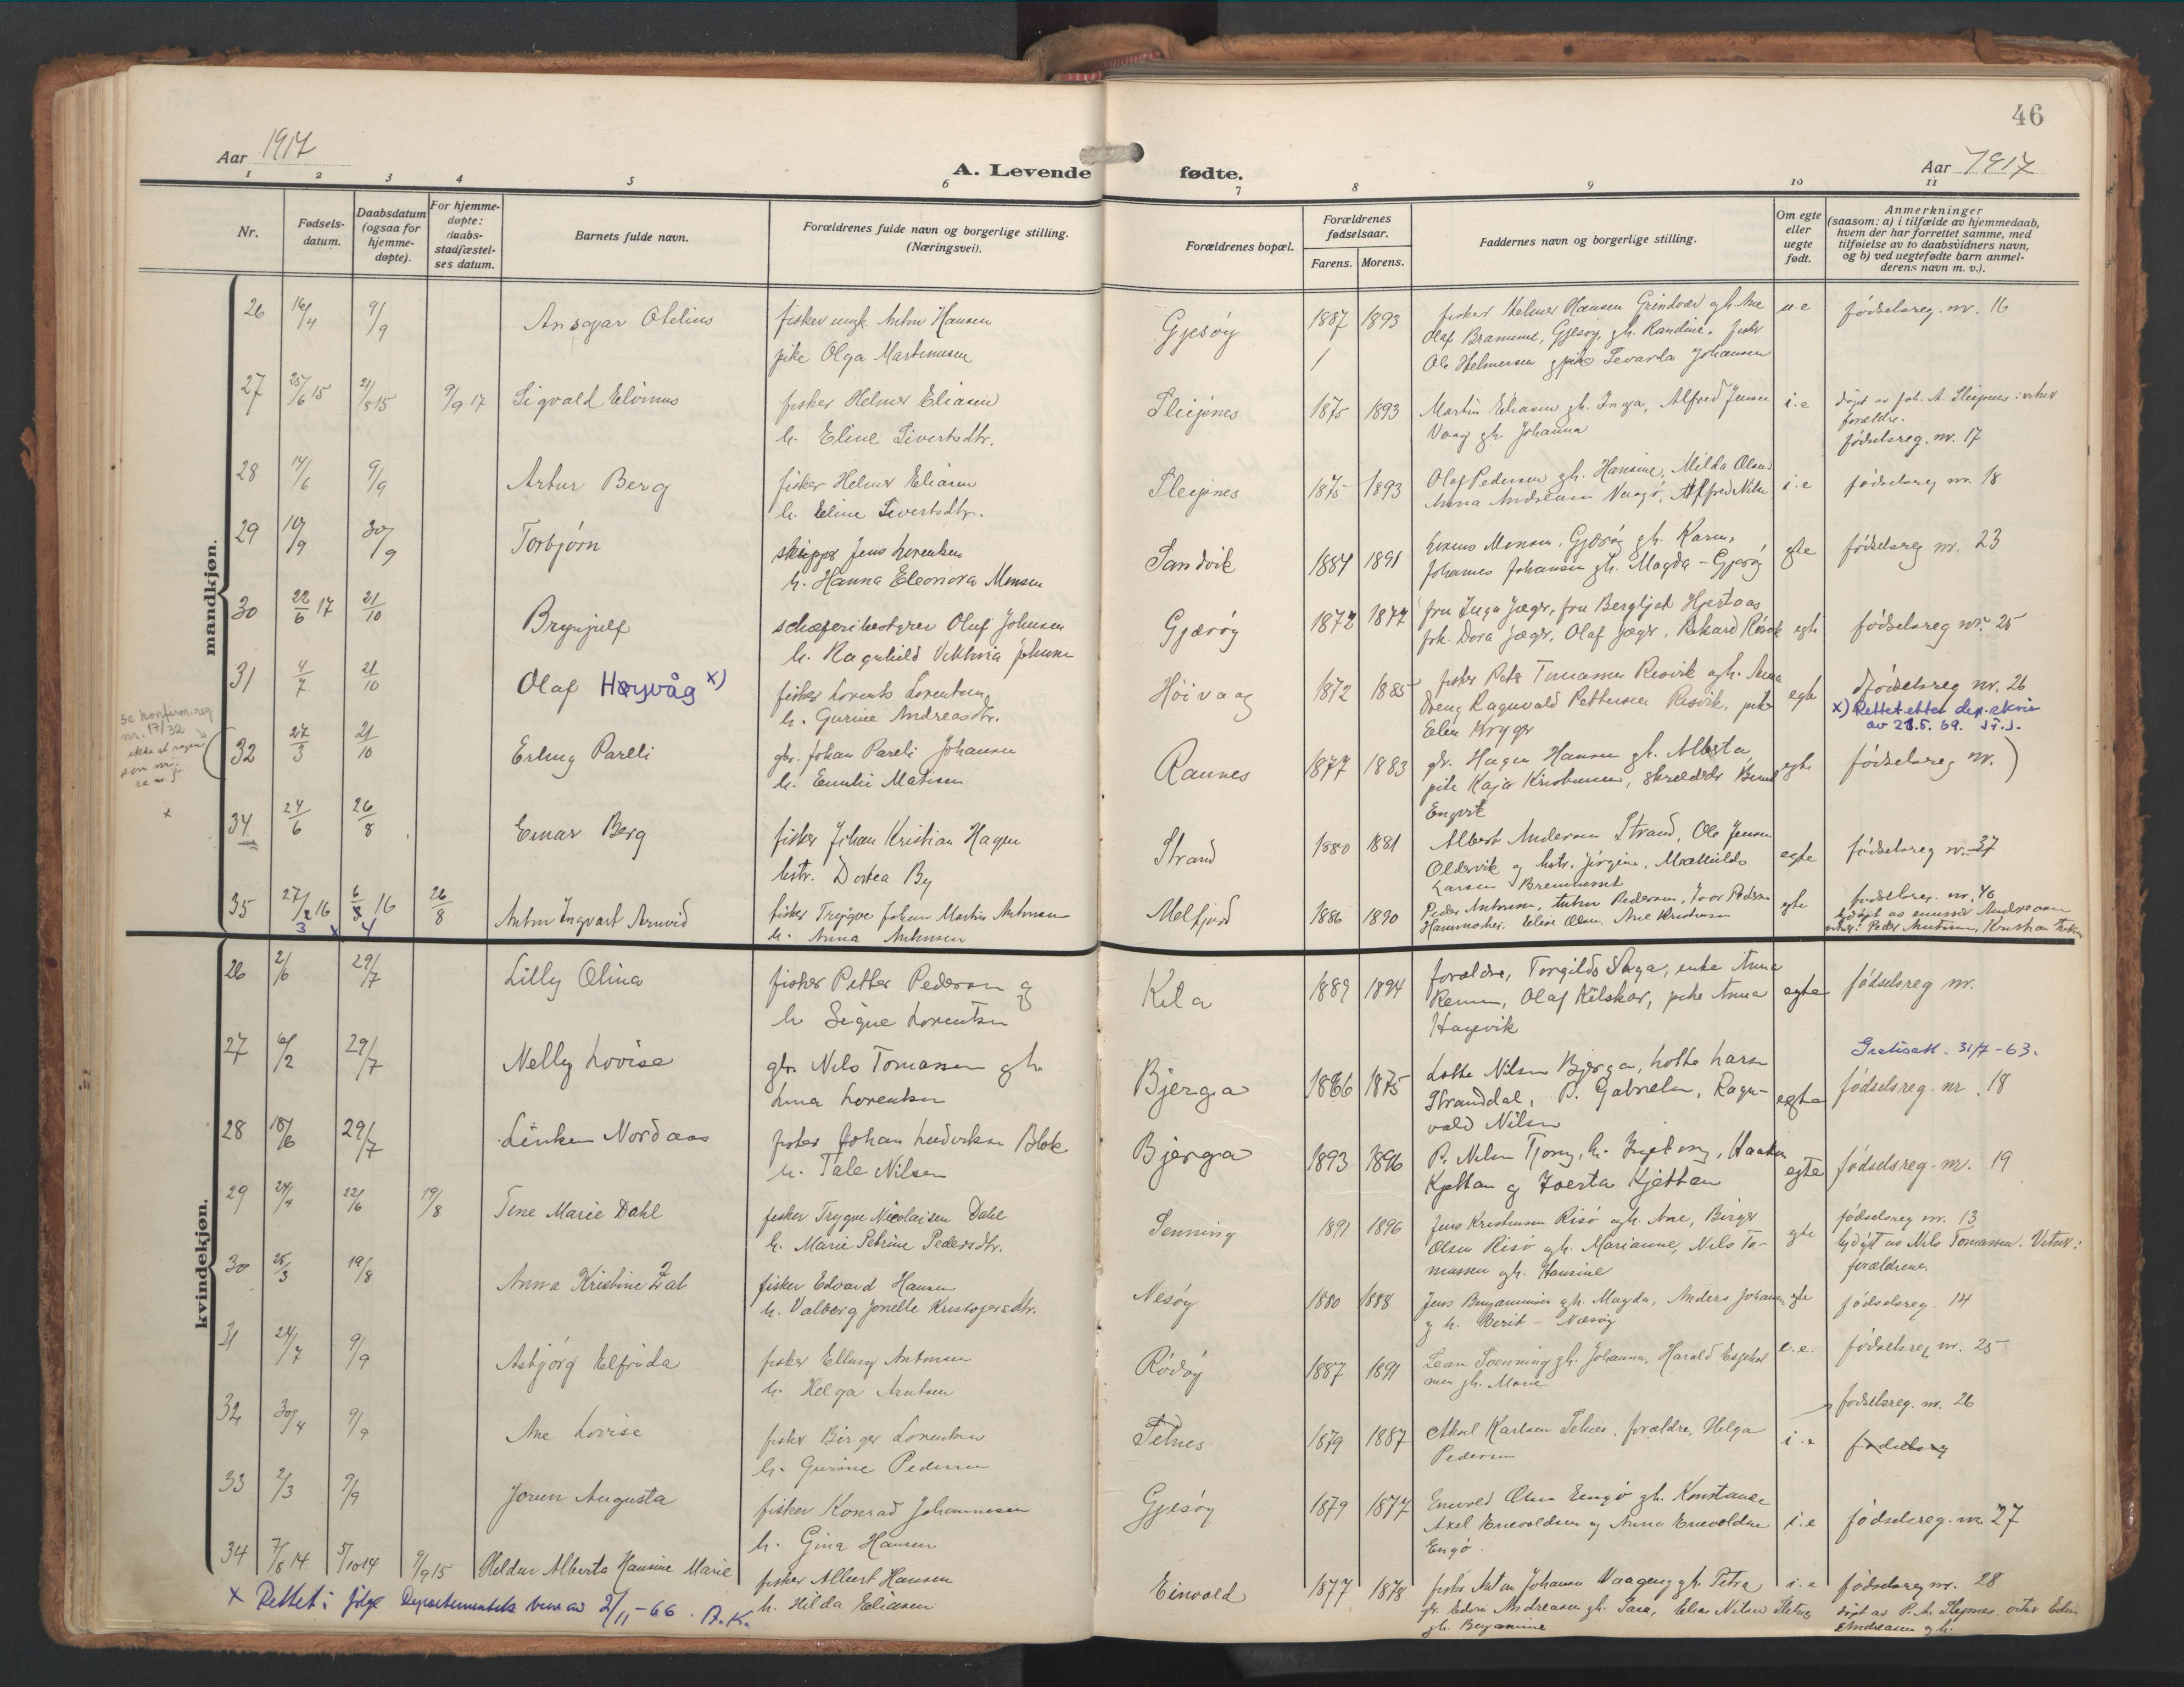 46
Aar 1917
A. Levende fødte.
Aar 1917
1 2 3 4 5 6 7 8 9 10 11
Nr.
Fødsels-
datum.
Daabsdatum
(ogsaa for
hjemme-
døpte).
For hjemme-
døpte:
daabs-
stadfæstel-
ses datum.
Barnets fulde navn.
Forældrenes fulde navn og borgerlige stilling.
(Næringsvei).
Forældrenes bopæl.
Forældrenes
fødselsaar.
Farens. Morens.
Faddernes navn og borgerlige stilling.
Om egte
eller
uegte
født.
Anmerkninger
(saasom: a) i tilfælde av hjemmedaab,
hvem der har forrettet samme, med
tilføielse av to daabsvidners navn,
og b) ved uegtefødte barn anmel-
derens navn m. v.).
mandkjøn.
26 16/4 9/9 Ansgar Otelius fisker ungk. Anton Hansen
pike Olga Martinusen
Gjesøy 1887 1893 fisker Helmer Hansen Grindvær gh. Ane
Olaf Brammel, Gjesøy, gh. Randine, fisker
Ole Helmersen g pike Sevarda Johansen
u.e fødselsreg. nr. 16
27 25/6 15 21/8 15 9/9 17 Sigvald Elvinus fisker Helmer Eliasen
h. Eline Sivertsdtr.
Sleipnes 1875 1893 Martin Eliasen gh. Inga, Alfred Jensen
Vaag gh. Johanna
i.e døpt av Joh. A. Sleipnes: vitner
forældre.
fødselsreg. nr. 17
28 14/6 9/9 Artur Berg fisker Helmer Eliasen
h. Eline Sivertsdtr.
Sleipnes 1875 1893 Olaf Pedersen gh. Hansine, Milda Olsen
Anna Andreasen
i.e fødselsreg nr. 18
29 10/9 30/9 Torbjørn skipper Jens Lorentsen
h. Hanna Eleonora Monsen
Sandvik 1884 1891 Monsen, Gjærøy gh. Karen,
Johannes Johansen gh. Magda - Gjerøy
egte fødselsreg nr. 23
30 22/6 17 21/10 Brynjulf schæferibestyrer Oluf Johnsen
h. Ragnhild Viktoria Johnsen
Gjærøy 1872 1877 fru Inga Jæger, fru Bergljot Hjertaas
frk. Dora Jæger, Olaf Jæger, Rikard Risvik
egte fødselsreg nr. 25
31 4/7 21/10 Olaf Høyvåg x) fisker Lorents Lorentsen
h. Gurine Andreasdtr.
Høivaag 1872 1885 fisker Peter Tomassen Risvik gh. Anna
dreng Ragnvald Pettersen Risvik, pike
Elen Kryger
egte fødselsreg nr. 26
x) Rettet etter dep.skriv
av 21.5.69. J.F.J.
se konfirm.reg
nr. 17/32
32 27/3 21/10 Erling Pareli gbr. Johan Pareli Johansen
h. Emilie Matisen
Raunes 1877 1883 gbr. Hagen Hansen gh. Alberta
pike Kaja Kristensen, skrædder Bernt
Engvik
egte fødselsreg nr. )
34 24/6 26/8 Einar Berg fisker Johan Kristian Hagen
hstr. Dortea By
Strand 1880 1881 Albert Andersen Strand, Ole Jensen
Oldervik g hstr. Jørgine, Mathilde
Larsen Bremneset
egte fødselsreg nr. 37
35 27/2 16 3 6/8 16 x 4 26/8 Anton Ingvart Arnvid fisker Trygve Johan Martin Antonsen
h. Anna Antonsen
Melfjord 1886 1890 Peder Antonsen, Anton Pedersen, Ivar Pedersen
Hammerhei. Eline Olsen. Ane Kristensen
egte fødselsreg. nr. 46
hjdøpt av emissær Andreassen
vitner: Peder Antonsen, Kristian
kvindekjøn.
26 2/6 29/7 Lilly Olina fisker Petter Pedersen g
h Signe Lorentsen
Kila 1889 1894 forældre, Torgilds Saga, enke Anna
Rennen, Olaf Kilskar, pike Anna
Hagevik
egte fødselsreg nr.
27 6/2 29/7 Nelly Lovise gbr. Nils Tomassen gh.
Lina Lorentsen
Bjerga 1866 1875 Lotte Nilsen Bjerga, Lotte Larsen
Stranddal, P. Gabrielsen, Ragn-
vald Nilsen
egte Gratisatt. 31/7-63.
fødselsreg. nr. 18
28 18/6 29/7 Linken Nordaas fisker Johan Ludviksen Blok
h. Tale Nilsen
Bjerga 1893 1896 P. Nilsen Tjong, h. Ingborg, Haakon
Kjeltan g Zverta Kjeltan
egte fødselsreg. nr. 19
29 24/4 22/6 19/8 Tine Marie Dahl fisker Trygve Nicolaisen Dahl
h. Marie Petrine Pedersdtr.
Senning 1891 1896 Jens Kristensen Risø gh. Ane, Birger
Olsen Risø gh. Marianne, Nils To-
massen gh. Hansine
egte fødselsreg nr. 13
hjdøpt av Nils Tomassen. Vitner:
forældrene.
30 25/3 19/8 Anna Kristine Zal fisker Edvard Hansen
h. Valborg Jonette Kristofersdtr.
Nesøy 1880 1888 Jens Benjaminsen gh. Magda, Anders Johansen
g h. Berit - Næsøy
egte fødselsreg. 14
31 24/7 9/9 Asbjørg Elfrida fisker Elling Antonsen
h. Helga Arntsen
Rødøy 1887 1891 Svenning gh. Johanna, Harald
gh. Marie
e.e. fødselsreg nr. 25
32 30/4 9/9 Ane Lovise fisker Birger Lorentsen
h. Gurine Pedersen
Selnes 1879 1887 Aksel Karlsen Selnes, forældre, Helga
Pedersen
i.e fødselsreg. nr. 26
fødselsreg
33 2/3 9/9 Jorun Augusta fisker Konrad Johannesen
h. Gina Hansen
Gjesøy 1879 1877 Enevold Olsen Engø gh. Konstanse
Axel Enevoldsen og Anna Enevoldsen
Engø.
i.e fødselsreg. nr. 27
34 7/8 14 5/10 14 9/9 15 Heldur Alberta Hansine Marie fisker Albert Hansen
h. Hilda Eliasen
Einvold 1877 1878 fisker Anton Johansen Vaageng gh. Petra
gbr. Edvin Andreasen gh. Sara, Elias Nilsen Sletnes
gh. Benjamine
i.e fødselsreg nr. 28
døpt av P. A. Slepnes vitner Edvin
Andreasen g h.
x Rettet i følge Departementets brev av 2/11-66. B.K.